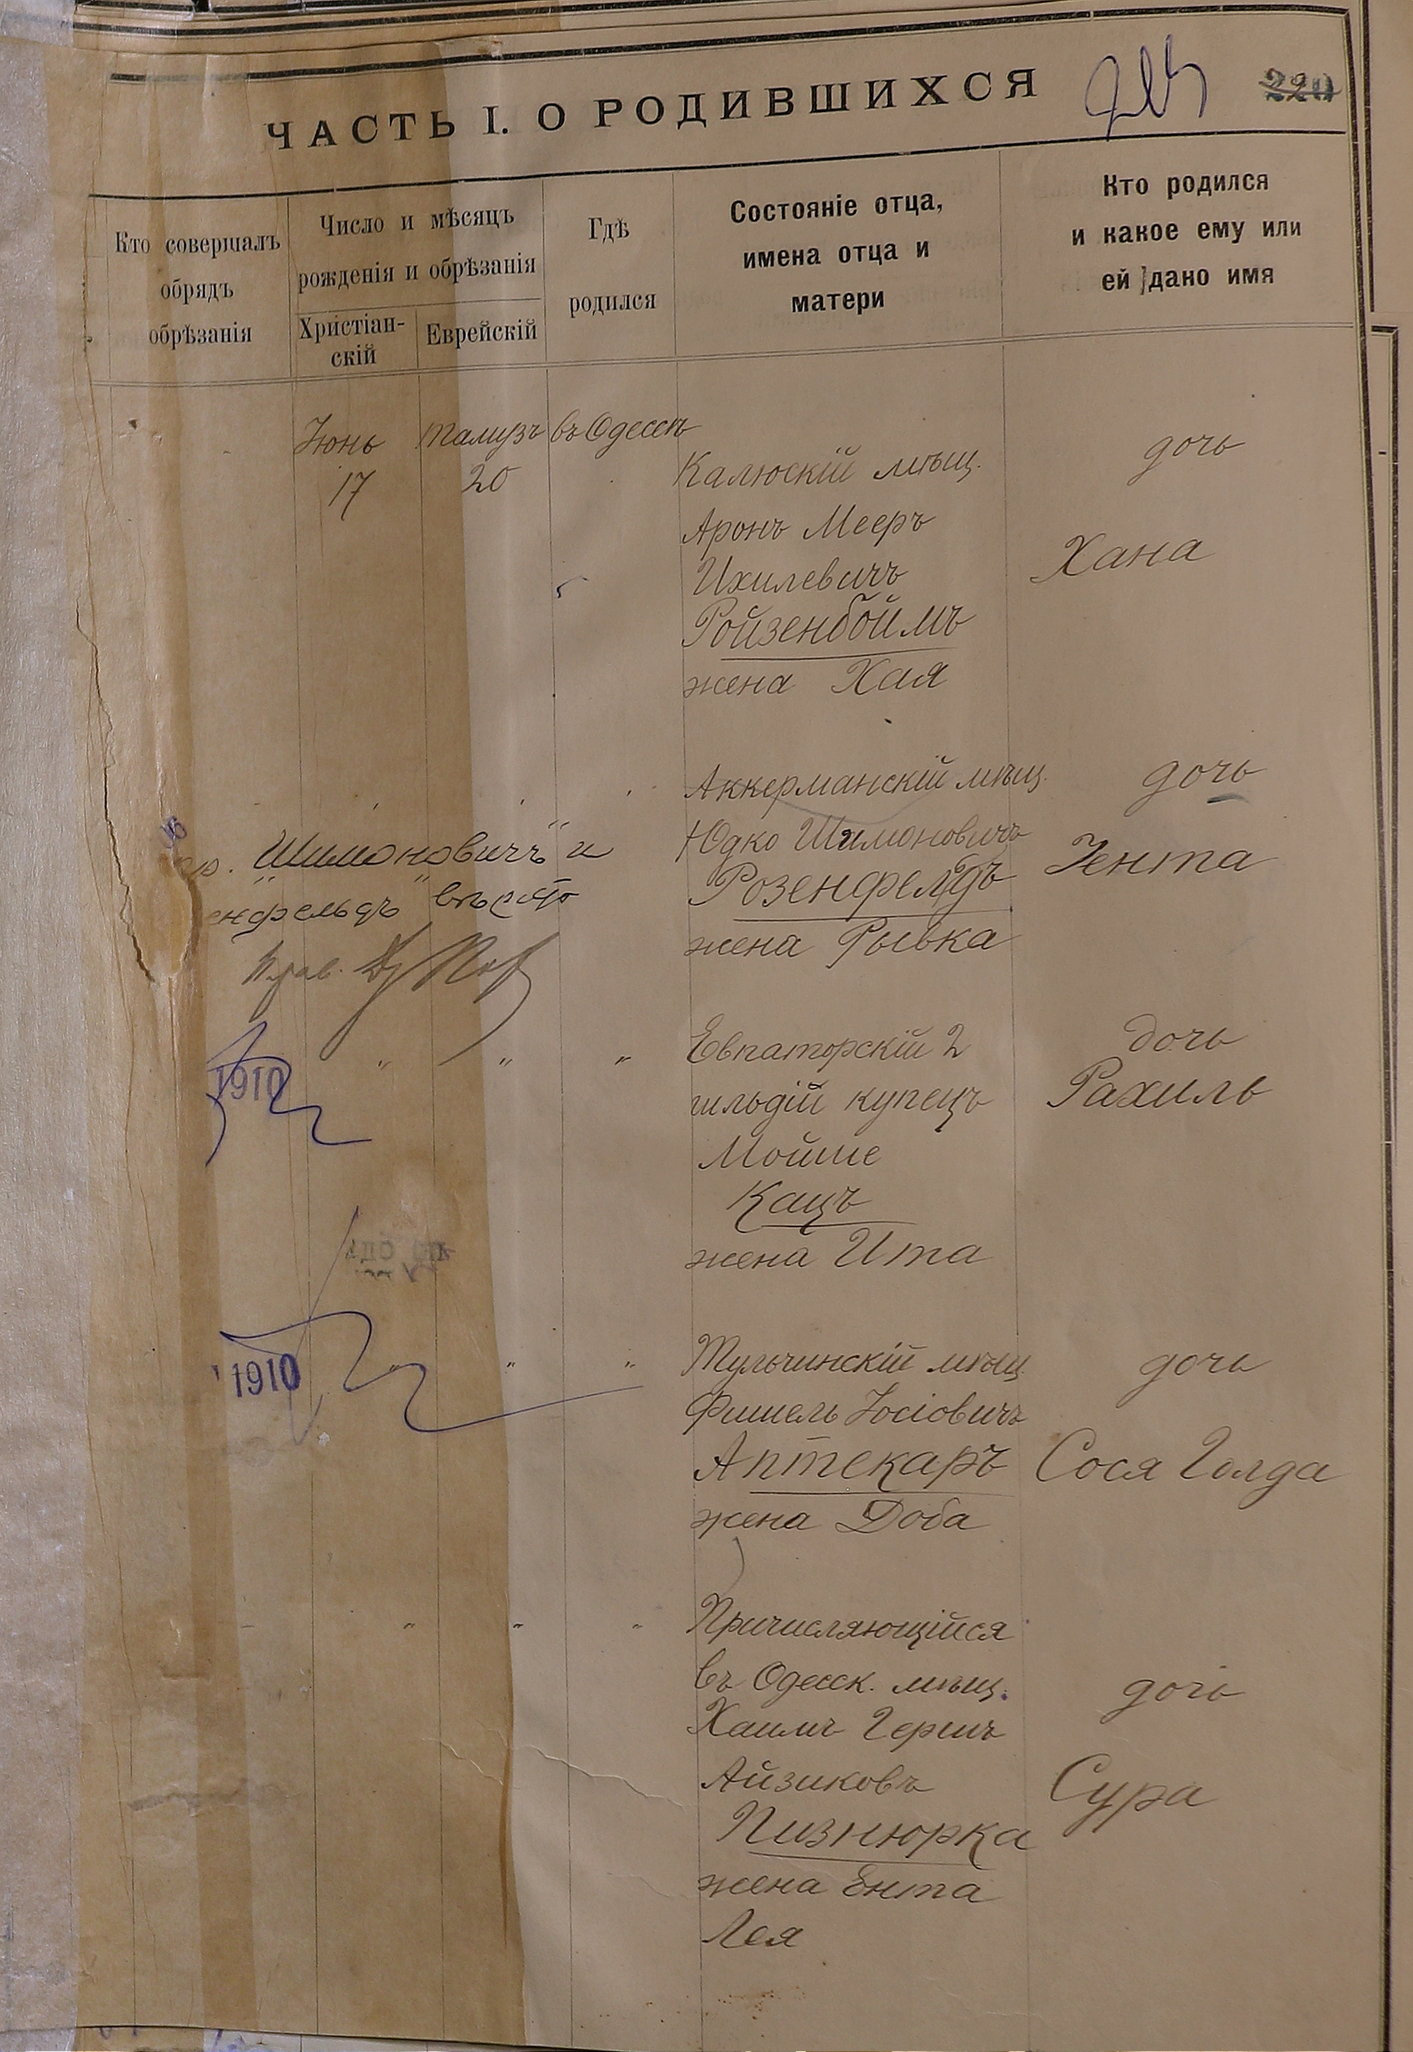 ЧАСТЬ I. О РОДИВШИХСЯ
220
Кто совершалъ
обрядъ
обрѣзанія
Число и мѣсяцъ
рожденія и обрѣзанія
Христіан-
скій
Еврейскій
Гдѣ
родился
Состояніе отца,
имена отца и
матери
Кто родился
и какое ему или
ей дано имя
Іюнь Тамузъ въ Одессѣ
17 20
Калюскій мѣщ.
Аронъ Мееръ
Ихилевичъ
Ройзенбоймъ
жена Хая
дочь
Хана
Аккерманскій мѣщ.
Юдко Шимоновичъ
Розенфельдъ
жена Рывка
дочь
Іента
"Шимоновичъ" и
енфельдъ"
" " "
Евпаторскій 2
гильдій купецъ
Мойше
Кацъ
жена Ита
дочь
Рахиль
1910
1910
" " "
Тульчинскій мѣщ.
Фишель Іосіовичъ
Аптекаръ
жена Доба
дочь
Сося Голда
" " "
Причисляющійся
въ Одесск. мѣщ.
Хаимъ Гершъ
Айзиковъ
Пизнюрка
жена Ента
Лея
дочь
Сура